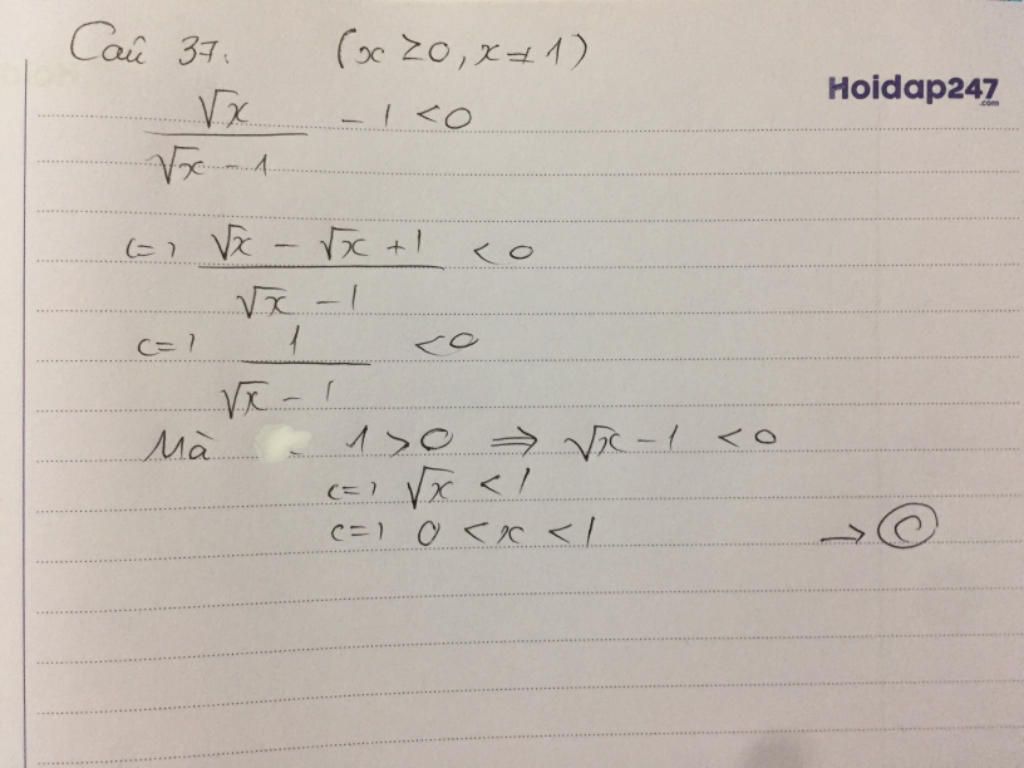 Câu 37. (x ≥ 0, x ≠ 1)
Hoidap247
.com
√x / (√x - 1) - 1 < 0
<=> (√x - √x + 1) / (√x - 1) < 0
<=> 1 / (√x - 1) < 0
Mà 1 > 0 ⇒ √x - 1 < 0
<=> √x < 1
<=> 0 < x < 1 → C